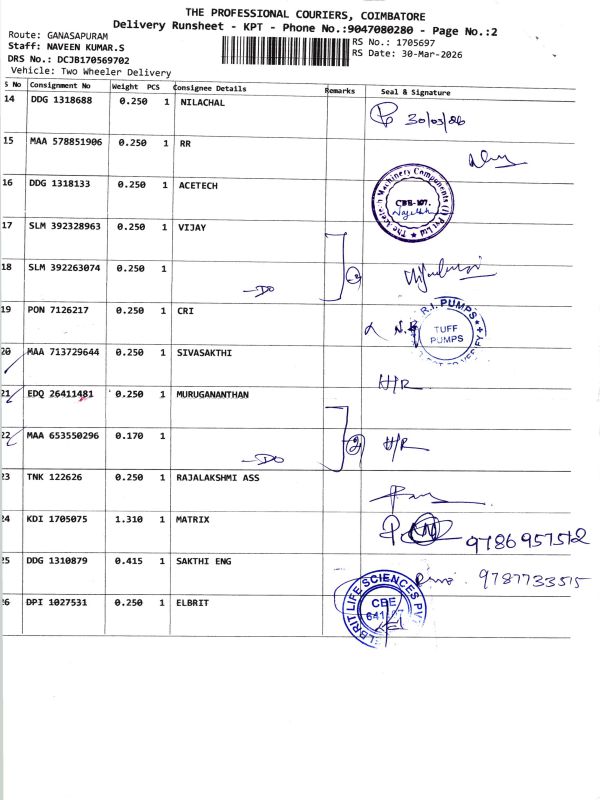 THE PROFESSIONAL COURIERS, COIMBATORE
Delivery Runsheet - KPT - Phone No.:9047080280 - Page No.:2
Route: GANASAPURAM
Staff: NAVEEN KUMAR.S
DRS No.: DCJB170569702
Vehicle: Two Wheeler Delivery
RS No.: 1705697
RS Date: 30-Mar-2026
S No Consignment No Weight PCS Consignee Details Remarks Seal & Signature
14 DDG 1318688 0.250 1 NILACHAL 30/03/26
15 MAA 578851906 0.250 1 RR
16 DDG 1318133 0.250 1 ACETECH
CBE-107.
17 SLM 392328963 0.250 1 VIJAY
18 SLM 392263074 0.250 1
-DO 2
19 PON 7126217 0.250 1 CRI
R.I. PUMPS
TUFF
PUMPS
20 MAA 713729644 0.250 1 SIVASAKTHI H/R
21 EDQ 26411481 0.250 1 MURUGANANTHAN
22 MAA 653550296 0.170 1 H/R
-DO 2
23 TNK 122626 0.250 1 RAJALAKSHMI ASS
24 KDI 1705075 1.310 1 MATRIX 9786957512
25 DDG 1310879 0.415 1 SAKTHI ENG 9787733515
26 DPI 1027531 0.250 1 ELBRIT
ELBRIT LIFE SCIENCES PVT
CBE